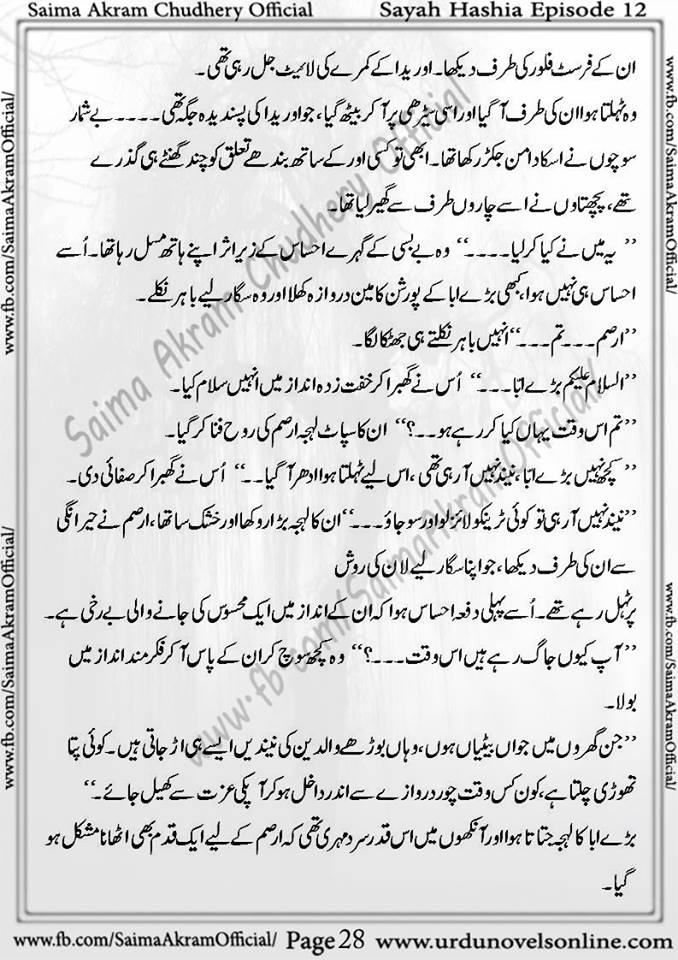 Saima Akram Chudhery Official    Sayah Hashia Episode 12
ان کے فرسٹ فلور کی طرف دیکھا۔ اوریدا کے کمرے کی لائیٹ جل رہی تھی ۔
وہ ٹہلتا ہوا ان کی طرف آ گیا اور اسی سیڑھی پر آ کر بیٹھ گیا، جو اوریدا کی پسندیدہ جگہ تھی ۔۔۔۔ بے شمار
سوچوں نے اسکا دامن جکڑ رکھا تھا۔ ابھی تو کسی اور کے ساتھ بندھے تعلق کو چند گھنٹے ہی گذرے
تھے، پچھتاوں نے اسے چاروں طرف سے گھیر لیا تھا۔
’’ یہ میں نے کیا کر لیا ۔۔۔۔‘‘ وہ بے بسی کے گہرے احساس کے زیر اثر اپنے ہاتھ مسل رہا تھا۔ اُسے
احساس ہی نہیں ہوا، کبھی بڑے ابا کے پورشن کا مین دروازہ کھلا اور وہ سگار لیے باہر نکلے۔
’’ارصم ۔۔۔ تم ۔۔۔‘‘ انہیں باہر نکلتے ہی جھٹکا لگا۔
’’السلام علیکم بڑے ابّا ۔۔۔‘‘ اُس نے گھبرا کر خفت زدہ انداز میں انہیں سلام کیا۔
’’تم اس وقت یہاں کیا کر رہے ہو ۔۔؟‘‘ ان کا سپاٹ لہجہ ارصم کی روح فنا کر گیا۔
’’ کچھ نہیں بڑے ابّا، نیند نہیں آ رہی تھی ، اس لیے ٹہلتا ہوا ادھر آ گیا ۔۔‘‘ اُس نے گھبرا کر صفائی دی۔
’’نیند نہیں آ رہی تو کوئی ٹرینکولائزر لو اور سو جاؤ ۔۔۔‘‘ ان کا لہجہ بڑا روکھا اور خشک سا تھا، ارصم نے حیرانگی
سے ان کی طرف دیکھا، جو اپنا سگار لیے لان کی روش
پر ٹہل رہے تھے۔ اُسے پہلی دفعہ احساس ہوا کہ ان کے انداز میں ایک محسوس کی جانے والی بے رخی ہے۔
’’ آپ کیوں جاگ رہے ہیں اس وقت ۔۔۔؟‘‘ وہ کچھ سوچ کر ان کے پاس آ کر فکر مند انداز میں
بولا۔
’’جن گھروں میں جواں بیٹیاں ہوں، وہاں بوڑھے والدین کی نیندیں ایسے ہی اڑ جاتی ہیں۔ کوئی پتا
تھوڑی چلتا ہے، کون کس وقت چور دروازے سے اندر داخل ہو کر آپکی عزت سے کھیل جائے۔‘‘
بڑے ابا کا لہجہ جتاتا ہوا اور آنکھوں میں اس قدر سرد مہری تھی کہ ارصم کے لیے ایک قدم بھی اٹھانا مشکل ہو
گیا۔
www.fb.com/SaimaAkramOfficial/ Page 28 www.urdunovelsonline.com
www.fb.com/SaimaAkramOfficial/
www.fb.com/SaimaAkramOfficial/
www.fb.com/SaimaAkramOfficial/
www.fb.com/SaimaAkramOfficial/
Saima Akram Chudhery Official
www.fb.com/SaimaAkramOfficial/